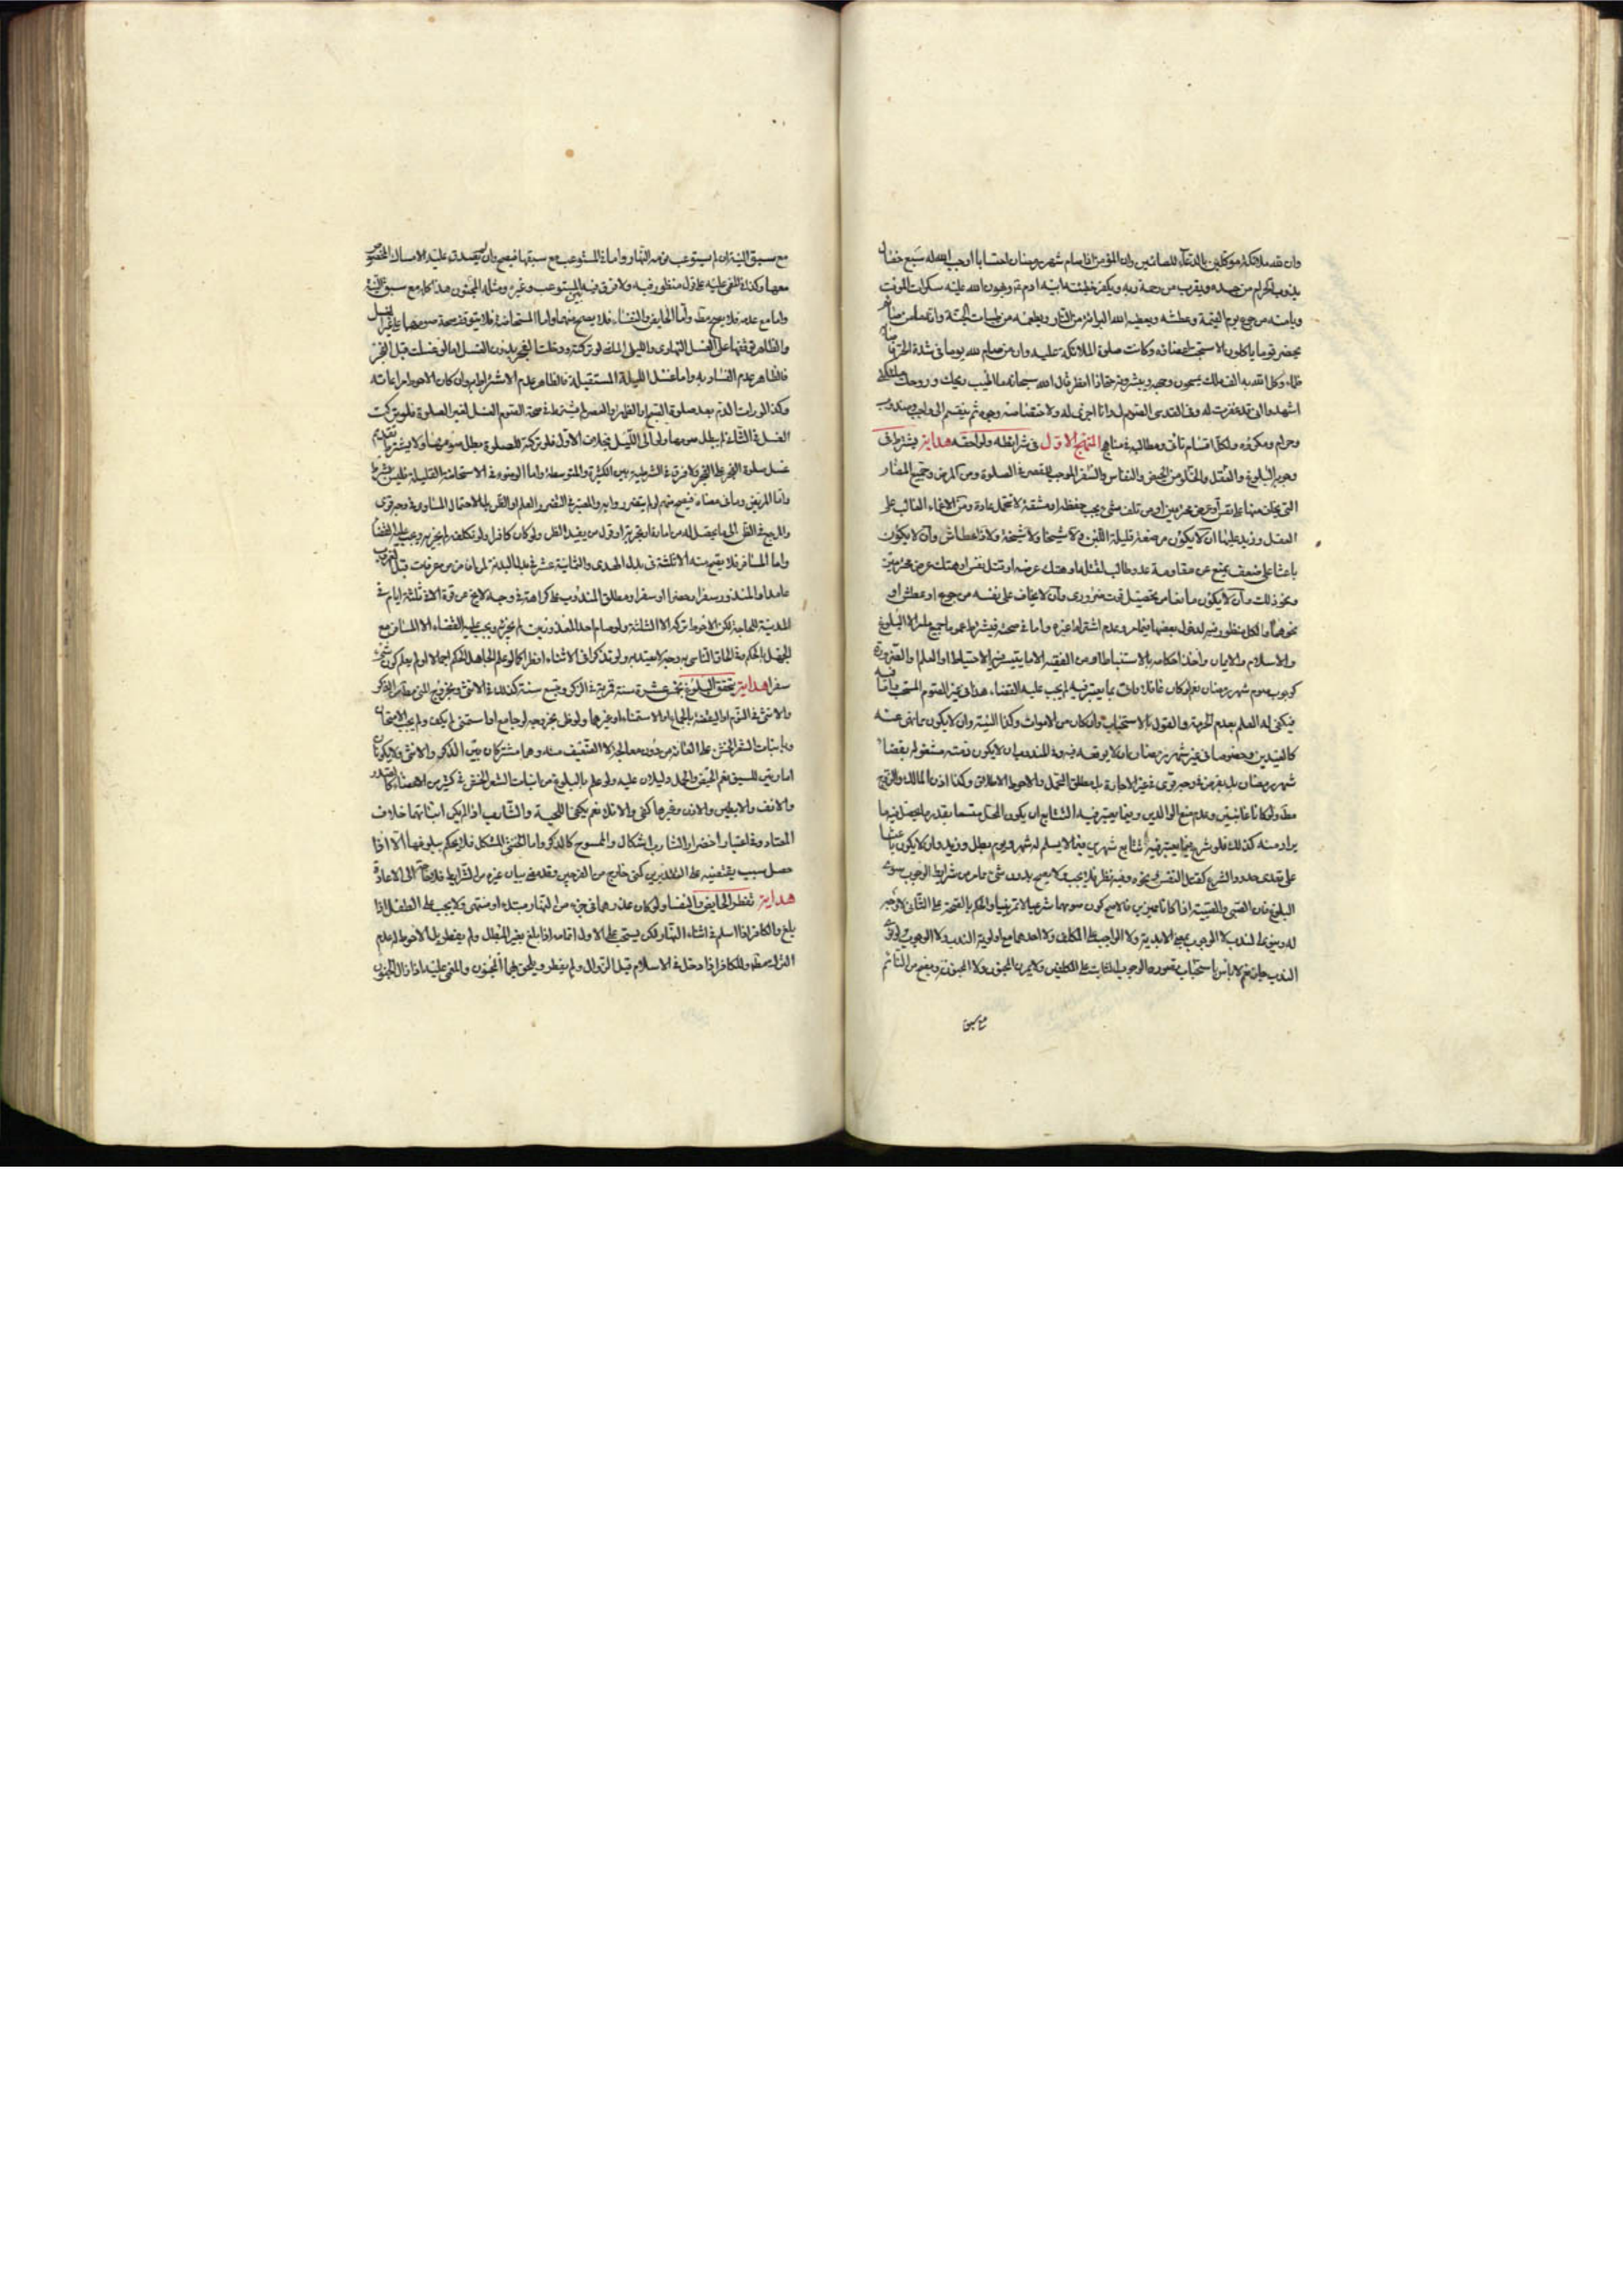 وان لله ملائكة موكلين بالدعاء للصائمين وان المؤمن اذا صام شهر رمضان احتسابا اوجب الله له سبع خصال
يذوب الحرام من جسده ويقرب من رحمة ربه ويكفر خطيئة ابيه ادم ويهون الله عليه سكرات الموت
ويامنه من جوع يوم القيمة وعطشه ويعطيه الله البراءة من النار ويطعمه من طيبات الجنة وانه ما من صائم
يحضر قوما ياكلون الا سبحت اعضاؤه وكانت صلوة الملائكة عليه وان من صام لله يوما في شدة الحر فاصابه
ظماء وكل الله به الف ملك يمسحون وجهه ويبشرونه حتى اذا افطر قال الله سبحانه ما اطيب ريحك وروحك ملائكتي
اشهدوا اني قد غفرت له وفي القدسي الصوم لي وانا اجزي له ثم ينقسم الى واجب ومندوب
وحرام ومكروه ولكل اقسام تاتي ومطالبه في مناهج المنهج الاول في شرايطه ولواحقه هداية يشترط في
وجوبه البلوغ والعقل والخلو من الحيض والنفاس والسفر الموجب للقصر في الصلوة ومن المرض وجميع المضار
التي يخاف منها على نفس او عرض محترمين او من تلف شيء يجب حفظه او مشقة لا تتحمل عادة ومن الاغماء الغالب على
العقل وزيد عليها ان لا يكون مرضعة قليلة اللبن ولا شيخا ولا شيخة ولا ذا عطاش وان لا يكون
باعثا على ضعف يمنع عن مقاومة عدو طالب لقتله او هتك عرضه او قتل نفس او هتك عرض محترمين
ونحو ذلك وان لا يكون مانعا من تحصيل قوت ضروري وان لا يخاف على نفسه من جوع او عطش او
نحوهما والكل منظور فيه لدخول بعضها فيما مر وعدم اشتراط غيره واما في صحته فيشترط عموما جميع ما مر الا البلوغ
والاسلام والايمان واخذ احكامه بالاستنباط او من الفقيه الا ما يتيسر فيه الاحتياط او العلم والضرورة
كوجوب صوم شهر رمضان نعم لو كان غافلا واتى بما يعتبر فيه لم يجب عليه القضاء هذا في غير الصوم المستحب واما فيه
فيكفي له العلم بعدم الحرمة والقول بالاستحباب وان كان من الاموات وكذا النية وان لا يكون مما نهي عنه
كالعيدين وخصوصا في غير شهر رمضان بان لا يوقعه فيه وفي المندوب ان لا يكون ذمته مشغولة بقضاء
شهر رمضان بل بغيره في وجه قوي في غير الاجارة بل مطلق التحمل والاحوط الاطلاق وكذا اذن المالك والزوج
مطلقا ولو كانا غائبين وعدم منع الوالدين وفيما يعتبر فيه التتابع ان يكون المحل متسعا بقدر ما يحصل فيه ما
يراد منه كذلك فلو شرع فيما يعتبر فيه تتابع شهرين فيما لا يسلم له شهر ويوم بطل وزيد وان لا يكون باعثا
على تعدي حدود الشرع كقتل النفس ونحوه وفيه نظر ثم لا يجب ولا يصح بدون شيء مما مر من شرايط الوجوب سوى
البلوغ فان الصبي والصبية اذا كانا مميزين فالاصح كون صومهما شرعيا لا تمرينيا والحكم بالصحة على الثاني لا وجه
له وينوي الندب لا الوجوب
الندب نعم لا باس باستحباب
مع سبق
مع سبق النية ان لم يستوعب نومه النهار واما في المستوعب مع سبقها فيصح وان لم يصدق عليه الامساك المخصوص
معها وكذا في المغمى عليه على قول منظور فيه ولا فرق فيه بين المستوعب وغيره ومثله المجنون هذا كله مع سبق النية
واما مع عدمه فلا يصح مطلقا واما الحايض والنفساء فلا يصح منهما واما المستحاضة فلا يتوقف صحة صومها على غير الغسل
والظاهر توقفها على الغسل النهاري والليلي الماضي لو تركته ودخلت الفجر بدون الغسل اما لو غسلت قبل الفجر
فالظاهر عدم الفساد به واما غسل الليلة المستقبلة فالظاهر عدم الاشتراط به وان كان الاحوط مراعاته
وكذا لو رات الدم بعد صلوة الفجر او الظهرين والعصر لم يشترط في صحة الصوم الغسل لغير الصلوة فلو تركت
الغسل في الثلاثة لم يبطل صومها ولو اتى الليل بخلاف الاول فلو تركته للصلوة بطل صومها ولا يشترط تقديم
غسل صلوة الفجر على الفجر ولا فرق في الشرطية بين الكثيرة والمتوسطة واما الوضوء في الاستحاضة القليلة فليس شرطا
واما المريض وما في معناه فيصح منهم لو لم يتضرروا به والمعتبر في التضرر العلم او الظن بل الاحتمال المساوي في وجه قوي
والمرجع في الظن الى ما يحصل له من امارة او تجربة او قول من يفيد الظن ولو كان كافرا ولو تكلف لم يجز به ووجب عليه القضاء
واما المسافر فلا يصح منه الا ثلثة في بدل الهدي والثمانية عشر في بدل البدنة لمن افاض من عرفات قبل الغروب
عامدا والمنذور سفرا وحضرا او سفرا ومطلق المندوب على كراهة في وجه لا يخ عن قوة الا في ثلثة ايام في
المدينة للحاجة لكن الاحوط تركه الا الثلثة ولو صام احد المعذورين لم يجزه ويجب عليه القضاء الا المسافر مع
الجهل بالحكم وفي الحاق الناسي به وجه لا يعتد به ولو تذكر في الاثناء افطر كما لو علم الجاهل الحكم اجمالا او لم يعلم كون شيء
سفرا هداية يتحقق البلوغ بخمس عشرة سنة قمرية في الذكر وبتسع سنة كذلك في الانثى وبخروج المني من الذكر
والانثى في النوم او اليقظة بالجماع او الاستمناء او غيرهما ولو ظن بخروجه لو جامع او استمنى لم يكف ولم يجب الامتحان
وبانبات الشعر الخشن على العانة من دون معالجة لا الضعيف منه وهما مشتركان بين الذكر والانثى ولا يكونان
امارتين للسبق نعم الحيض والحمل دليلان عليه ولو علم بالبلوغ من انبات الشعر الخشن في كثير من الاعضاء كالصدر
والانف والابطين والاذن وغيرها كفى والا فلا نعم يكفي اللحية والشارب اذا لم يكن انباتهما خلاف
المعتاد وفي اعتبار اخضرار الشارب اشكال والممسوح كالذكر واما الخنثى المشكل فلا يحكم ببلوغها الا اذا
حصل سبب يقتضيه على التقديرين كمني خارج من الفرجين وقد مر في بيان غيره من الشرايط فلا حاجة الى الاعادة
هداية تفطر الحايض والنفساء ولو كان عذرهما في جزء من النهار مبتداه او منتهاه ولا يجب على الطفل اذا
بلغ والكافر اذا اسلم في اثناء النهار لكن يستحب على الاول اتمامه اذا بلغ بغير المبطل ولم يفطر بل الاحوط له عدم
الترك مطلقا وللكافر اذا دخل في الاسلام قبل الزوال ولم يفطر ويلحق بهما المجنون والمغمى عليه اذا زال الجنون